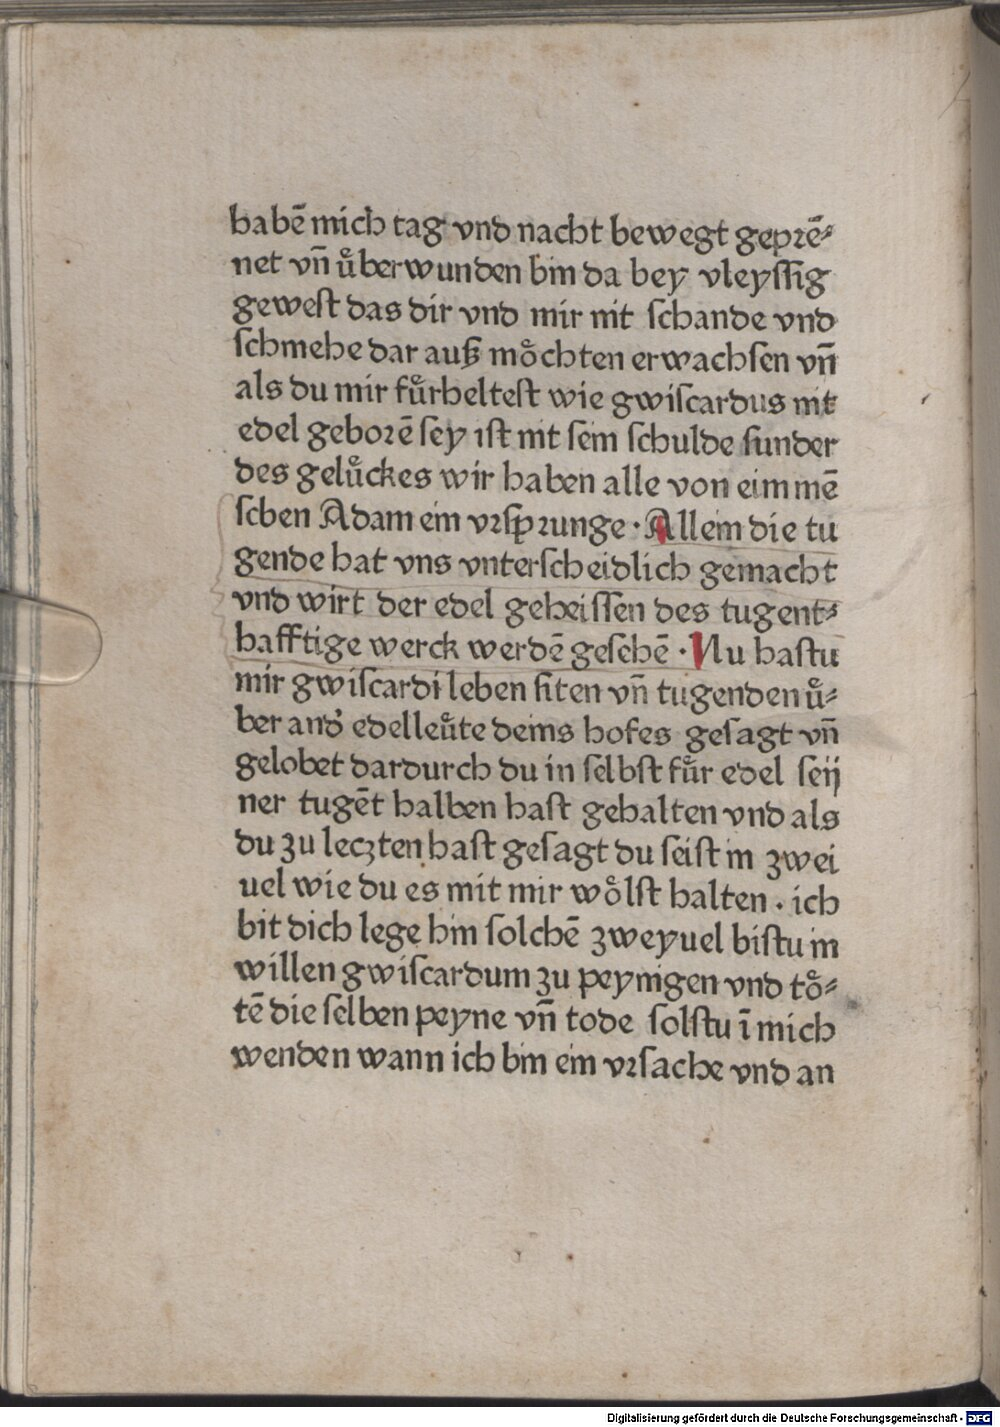 habē mich tag vnd nacht bewegt geprē⸗
net vn̄ uͤberwunden bin da bey vleyſſig
geweſt das dir vnd mir nit ſchande vnd
ſchmehe dar auß moͤchten erwachſen vn̄
als du mir fuͤrhelteſt wie gwiſcardus nit
edel geborē ſey iſt nit ſein ſchulde ſunder
des geluͤckes wir haben alle von eim mē
ſchen Adam ein vrſprunge · Allein die tu
gende hat vns vnterſcheidlich gemacht
vnd wirt der edel geheiſſen des tugent⸗
hafftige werck werdē geſehē · Nu haſtu
mir gwiſcardi leben ſiten vn̄ tugenden uͤ⸗
ber and̓ edelleuͤte deins hofes geſagt vn̄
gelobet dardurch du in ſelbſt fuͤr edel ſeij
ner tugēt halben haſt gehalten vnd als
du zu leczten haſt geſagt du ſeiſt in zwei
uel wie du es mit mir woͤlſt halten · ich
bit dich lege hin ſolchē zweyuel biſtu in
willen gwiſcardum zu peynigen vnd toͤ⸗
tē die ſelben peyne vn̄ tode ſolſtu ī mich
wenden wann ich bin ein vrſache vnd an
Digitalisierung gefördert durch die Deutsche Forschungsgemeinschaft - DFG